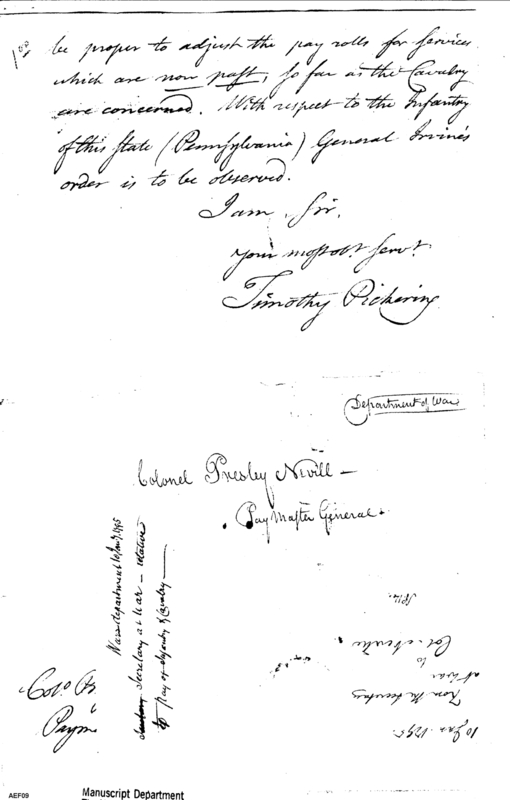 be proper to adjust the pay rolls for services
which are now past, so far as the Cavalry
are concerned. With respect to the Infantry
of this State (Pennsylvania) General Irvine's
order is to be observed.
I am, Sir,
your most obt. servt.
Timothy Pickering
Department of War
Colonel Presley Nevill —
Pay Master General
War department 10 Jany. 1795
Secretary at War — relative
to pay of Infantry & Cavalry —
Colo. Pr
Paym
10 Jan. 1795
From the Secretary
at War
to
Col. Neville
No. 14.
AEF09
Manuscript Department